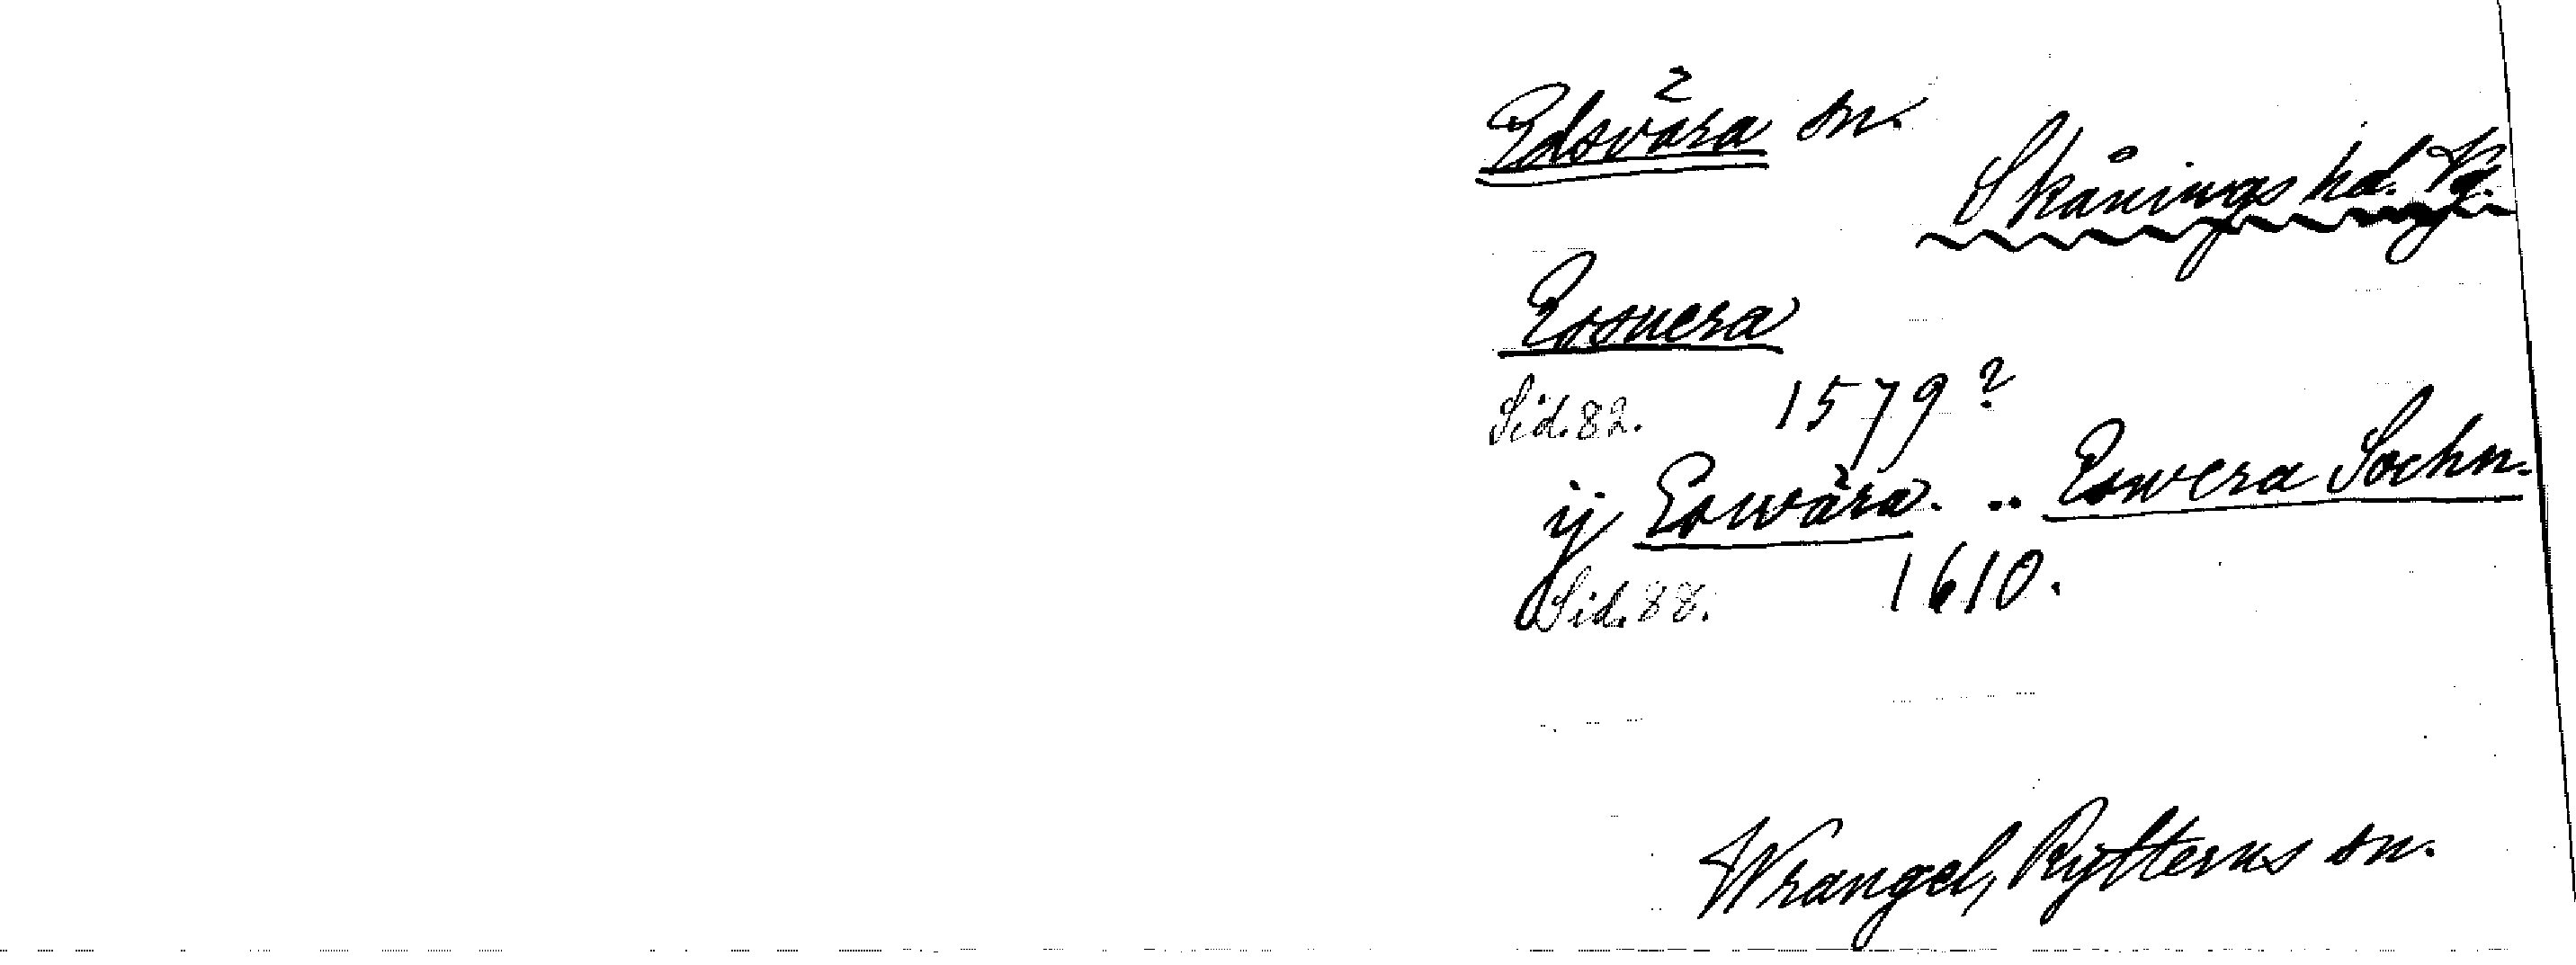 Edsvära sn.
Skånings hd. Vg.
Essuera
Sid. 82. 1579?
ij Eswära. .. Eswera Sochn.
Sid. 88. 1610.
Wrangel, Rytterns sn.